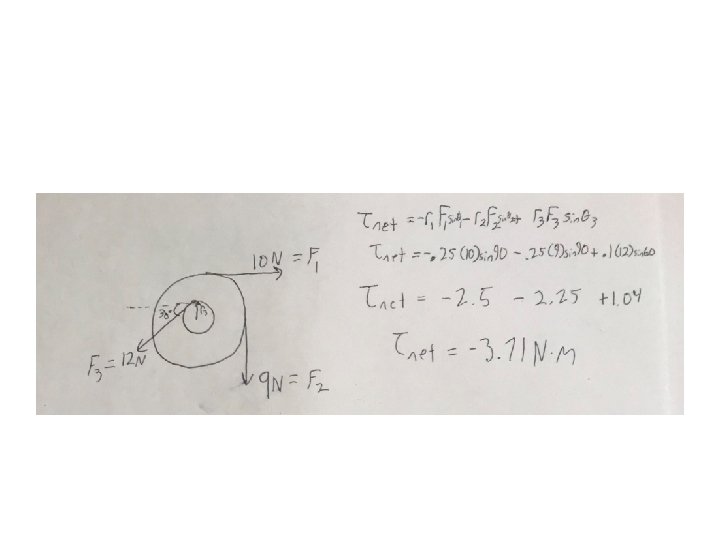 10N = F₁
30°
r₃
F₃ = 12N
9N = F₂
τnet = -r₁F₁sinθ₁ - r₂F₂sinθ₂ + r₃F₃ sinθ₃
τnet = -.25(10)sin90 - .25(9)sin90 + .1(12)sin60
τnet = -2.5 - 2.25 +1.04
τnet = -3.71 N·m